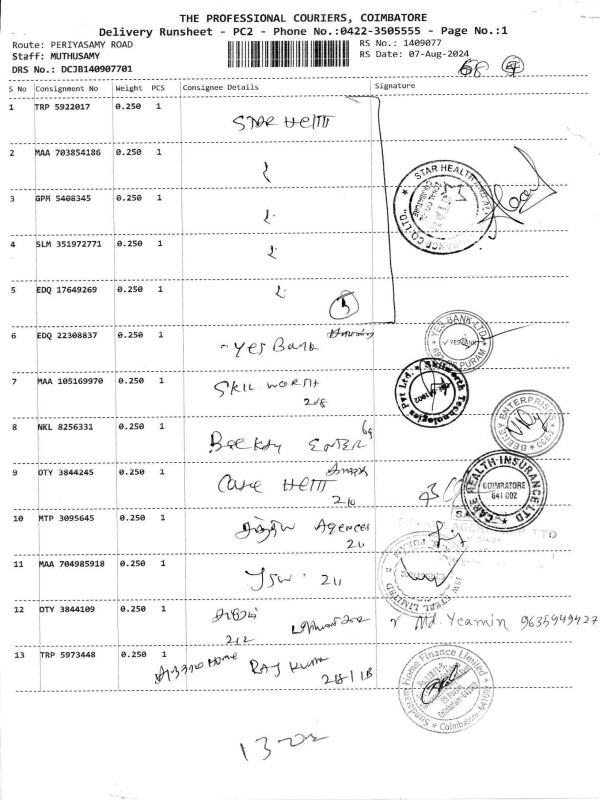 THE PROFESSIONAL COURIERS, COIMBATORE
Delivery Runsheet - PC2 - Phone No.:0422-3505555 - Page No.:1
Route: PERIYASAMY ROAD
RS No.: 1409077
Staff: MUTHUSAMY
RS Date: 07-Aug-2024
DRS No.: DCJB140907701
S No Consignment No Weight PCS Consignee Details Signature
1 TRP 5922017 0.250 1
STAR
2 MAA 703854186 0.250 1
STAR HEALTH
3 GPM 5408345 0.250 1
4 SLM 351972771 0.250 1
5 EDQ 17649269 0.250 1
5
6 EDQ 22308837 0.250 1
Yes Bank
YES BANK LTD
7 MAA 105169970 0.250 1
SKIL WORTH
208
Skilworth Technologies Pvt Ltd.
8 NKL 8256331 0.250 1
ENTER
BEEKEY ENTERPRISES
9 OTY 3844245 0.250 1
Care
210
CARE HEALTH INSURANCE LTD
COIMBATORE
641 002
10 MTP 3095645 0.250 1
Agences
211
11 MAA 704985918 0.250 1
JSW 211
JSW STEEL LIMITED
12 OTY 3844109 0.250 1
212
Md. Yeamin 9635949427
13 TRP 5973448 0.250 1
Home RAJ Kumar
Sundaram Home Finance Limited
Coimbatore-641002